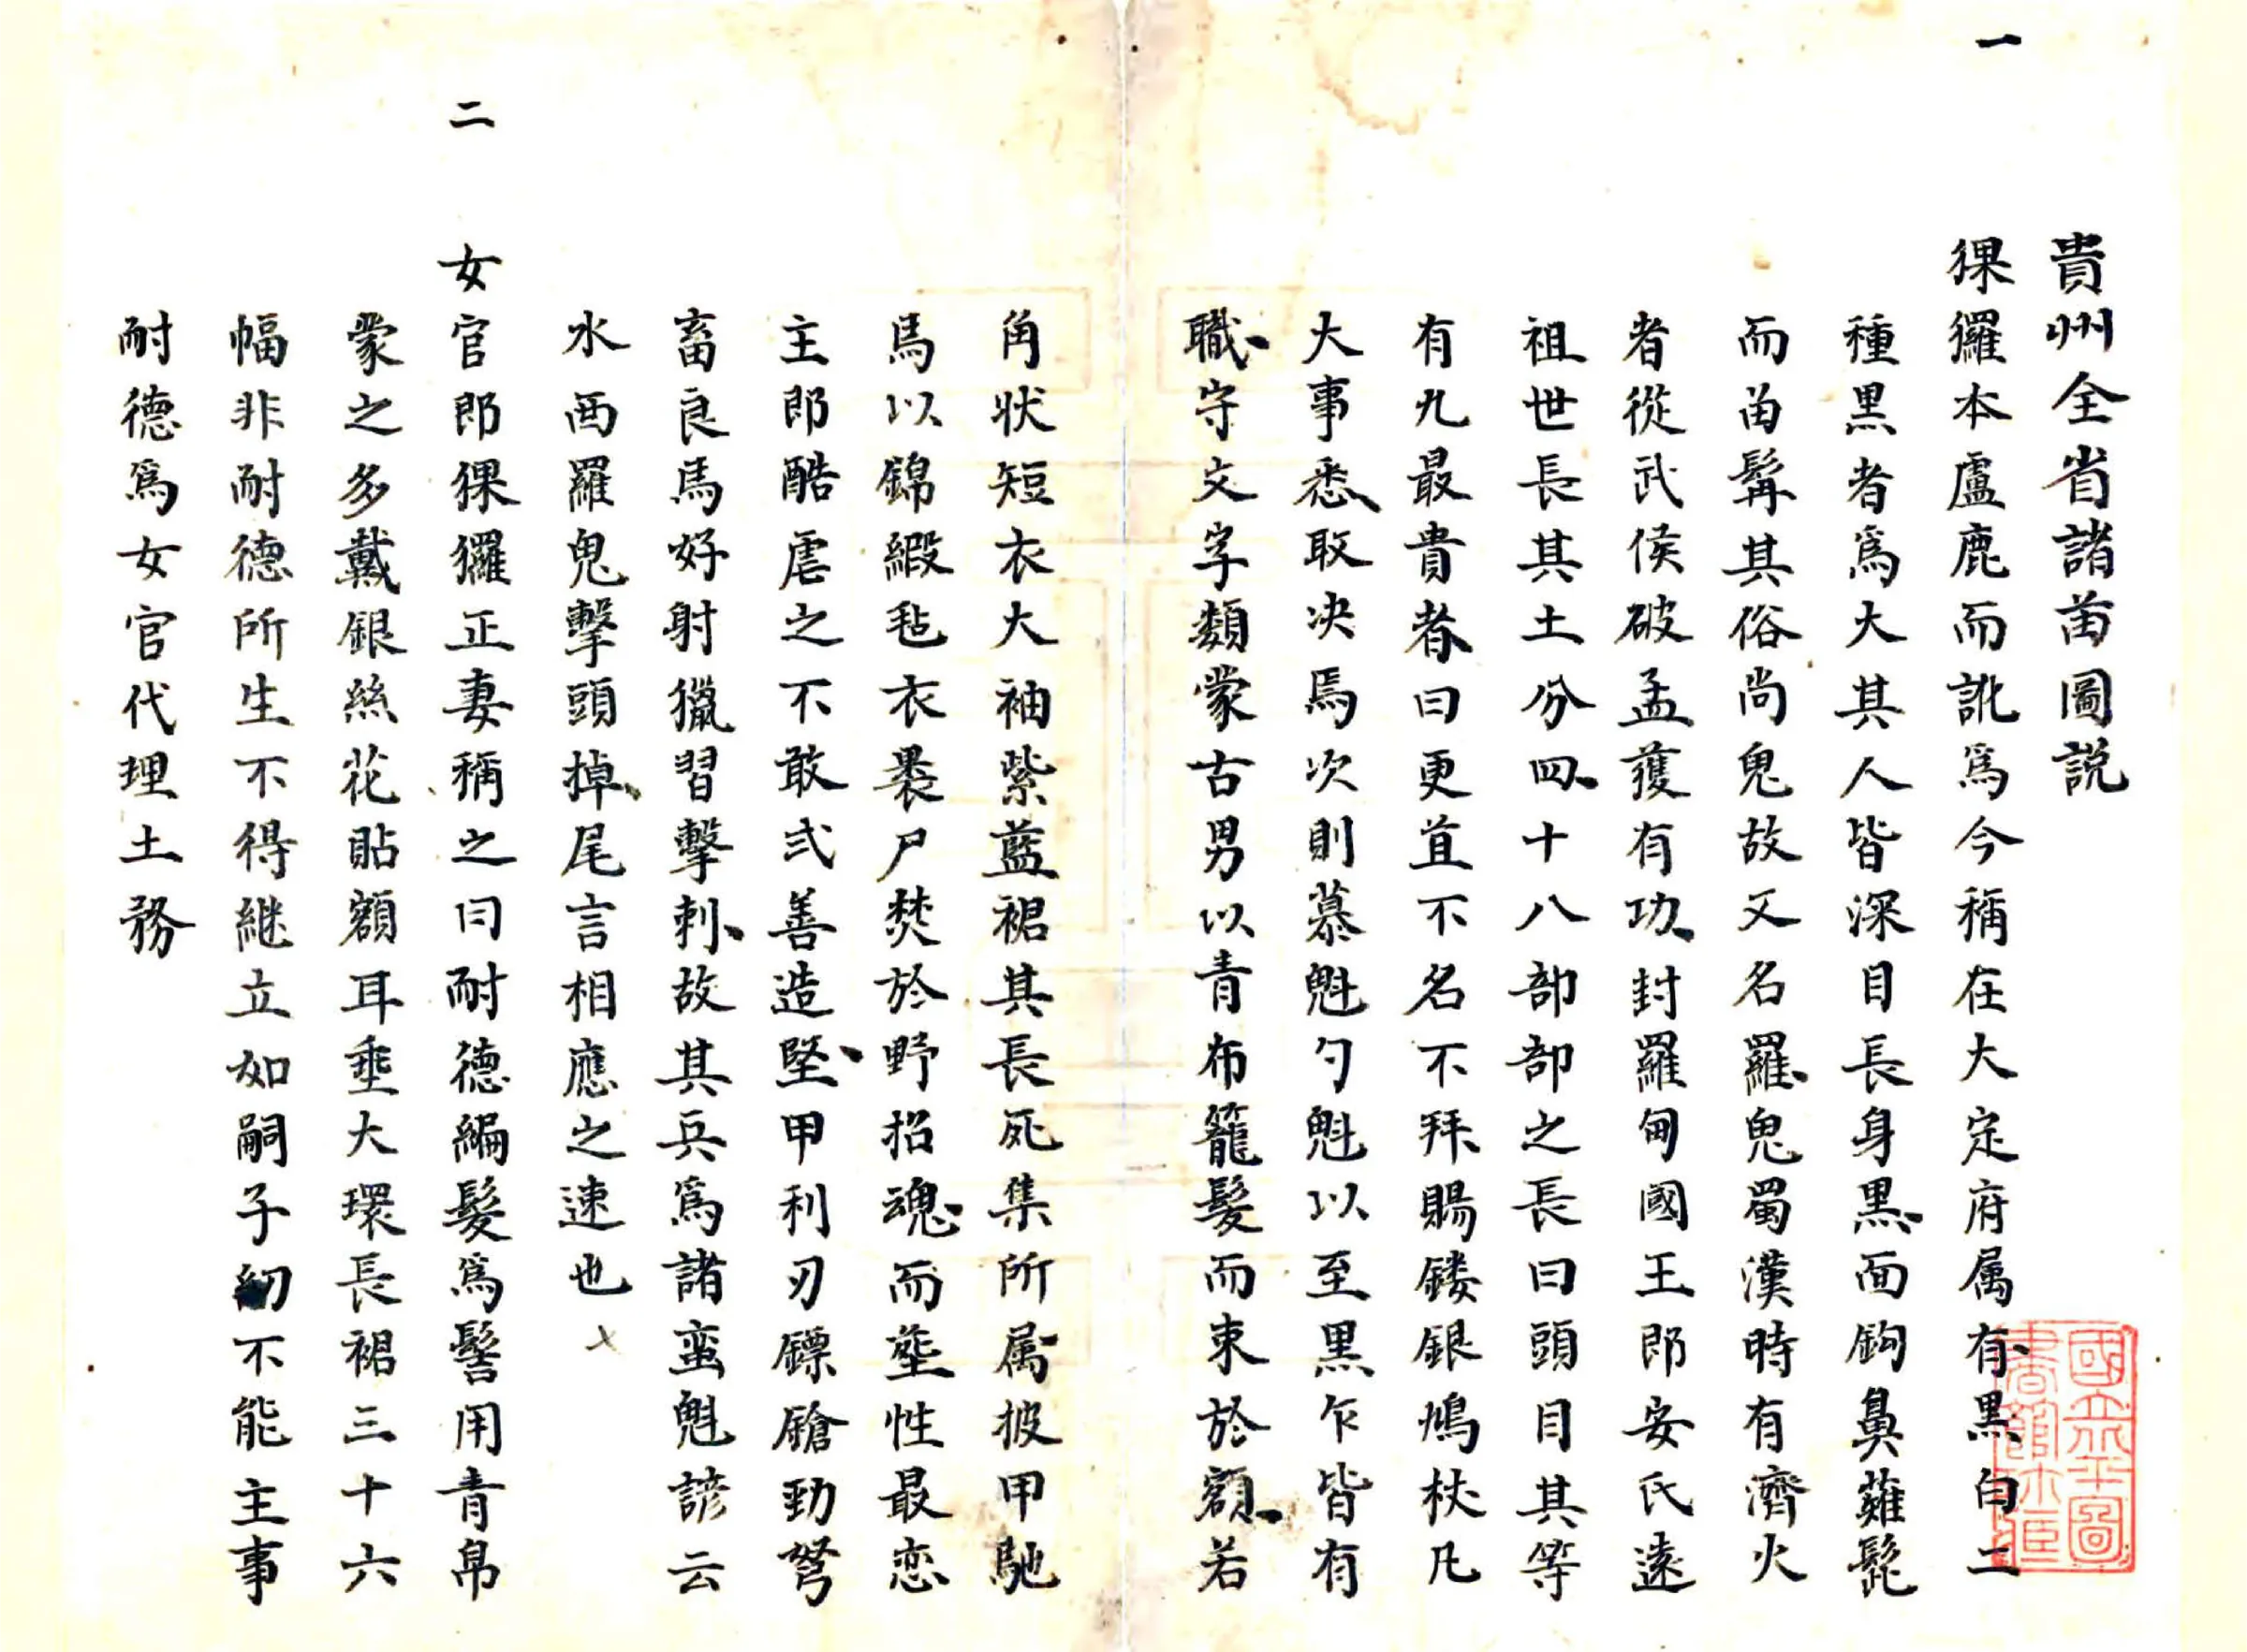 貴州全省諸苗圖説
一
猓玀本盧鹿而訛爲今稱在大定府属有黑白二
種黒者爲大其人皆深目長身黒面鈎鼻薙髭
而留髯其俗尚鬼故又名羅鬼蜀漢時有濟火
者從武侯破孟獲有功封羅甸國王即安氏遠
祖世長其土分四十八部部之長曰頭目其等
有九最貴者曰更苴不名不拜賜鏤銀鳩杖凡
大事悉取决焉次則慕魁勺魁以至黒乍皆有
職守文字類蒙古男以青布籠髮而束於額若
角状短衣大袖紫藍裙其長死集所属披甲馳
馬以錦緞毡衣裹尸焚於野招魂而塟性最恋
主即酷虐之不敢弍善造堅甲利刃鏢鎗勁弩
畜良馬好射獵習擊刺故其兵爲諸蛮魁諺云
水西羅鬼擊頭掉尾言相應之速也
二
女官即猓玀正妻稱之曰耐德編髮爲髻用青帛
蒙之多戴銀絲花貼額耳垂大環長裙三十六
幅非耐德所生不得継立如嗣子幼不能主事
耐德爲女官代理土務
國立北平圖
書館收藏